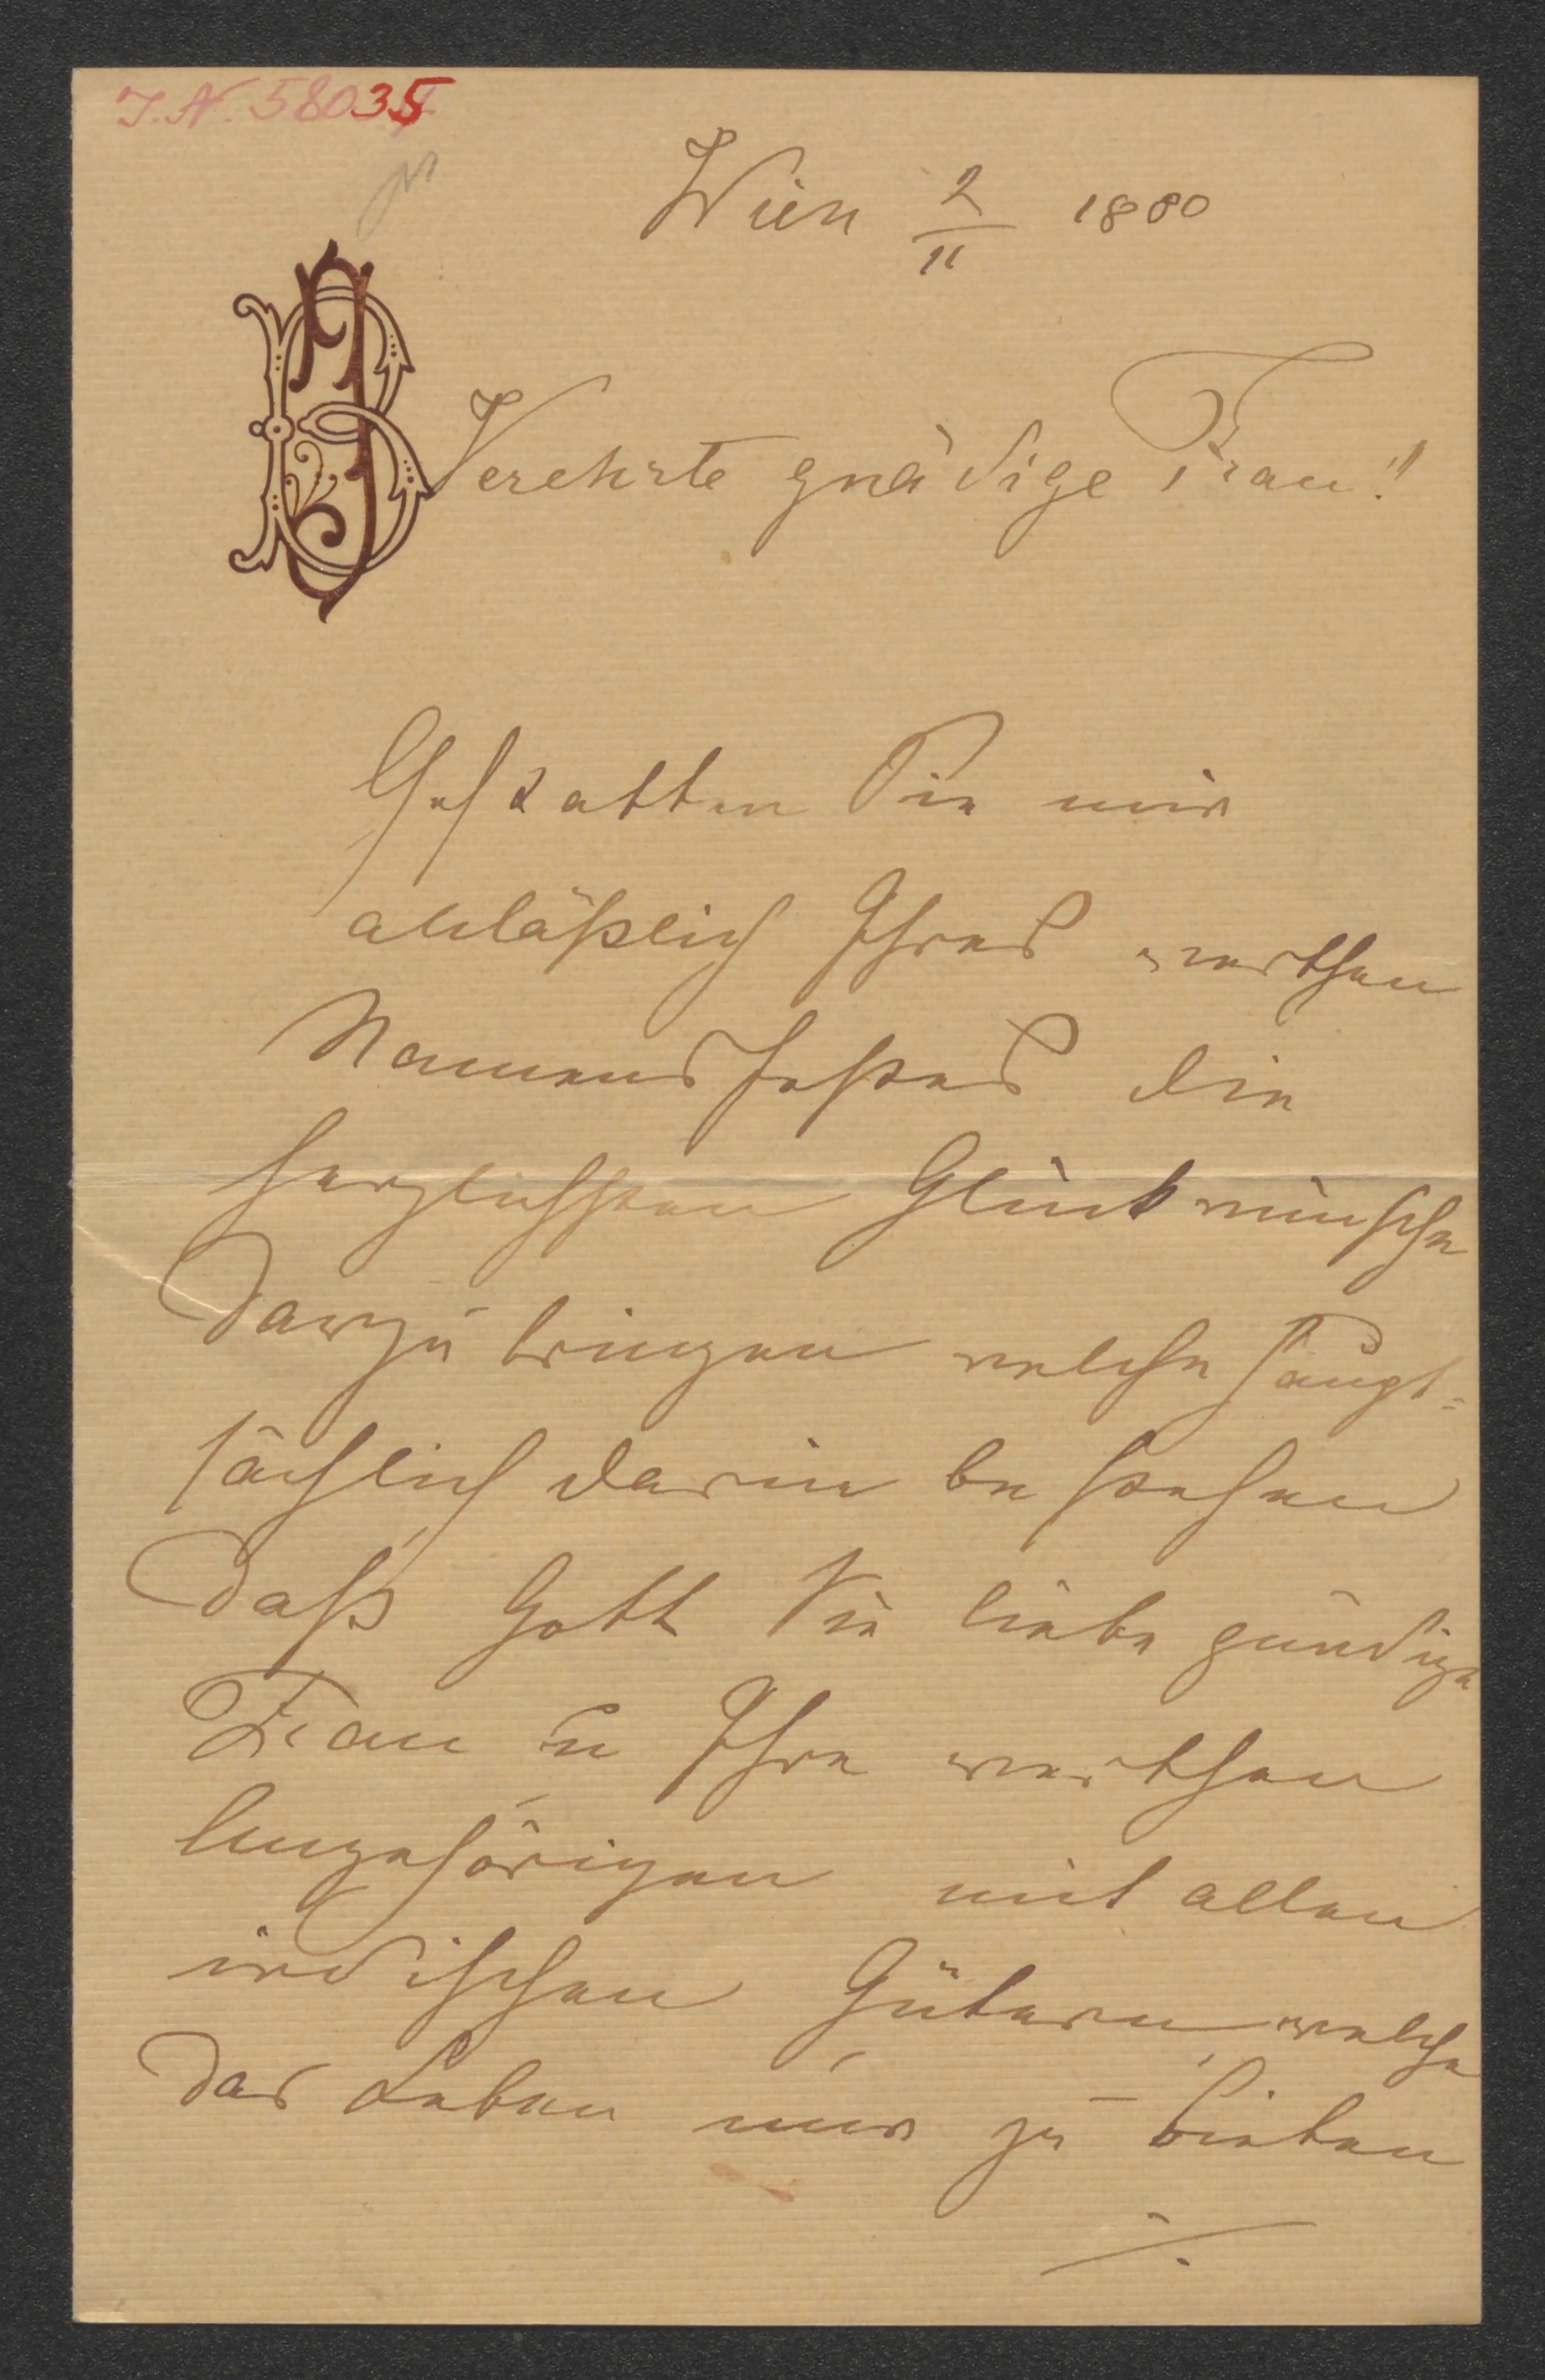 I.N. 58035
Wien 2/11 1880
B
Verehrte gnädige Frau!!
Gestatten Sie mir
anläßlich Ihres werthen
Namensfestes die
herzlichsten Glückwünsche
darzubringen welche haupt=
sächlich darin bestehen
daß Gott Sie liebe gnädige
Frau u Ihre werthen
Angehörigen mit allen
irdischen Gütern, welche
das Leben nur zu bieten
./.